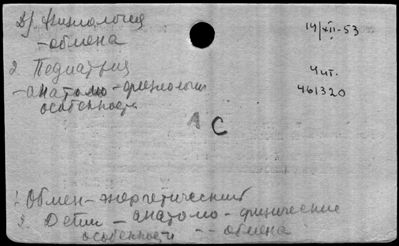 Др. Физиология
- обмена
14/XII-53
2. Педиатрия
- анатомо-физиологи
особенности
Чит.
461320
А С
1. Обмен - энергетический
2. Дети - анатомо-физические
особенности -- обмена